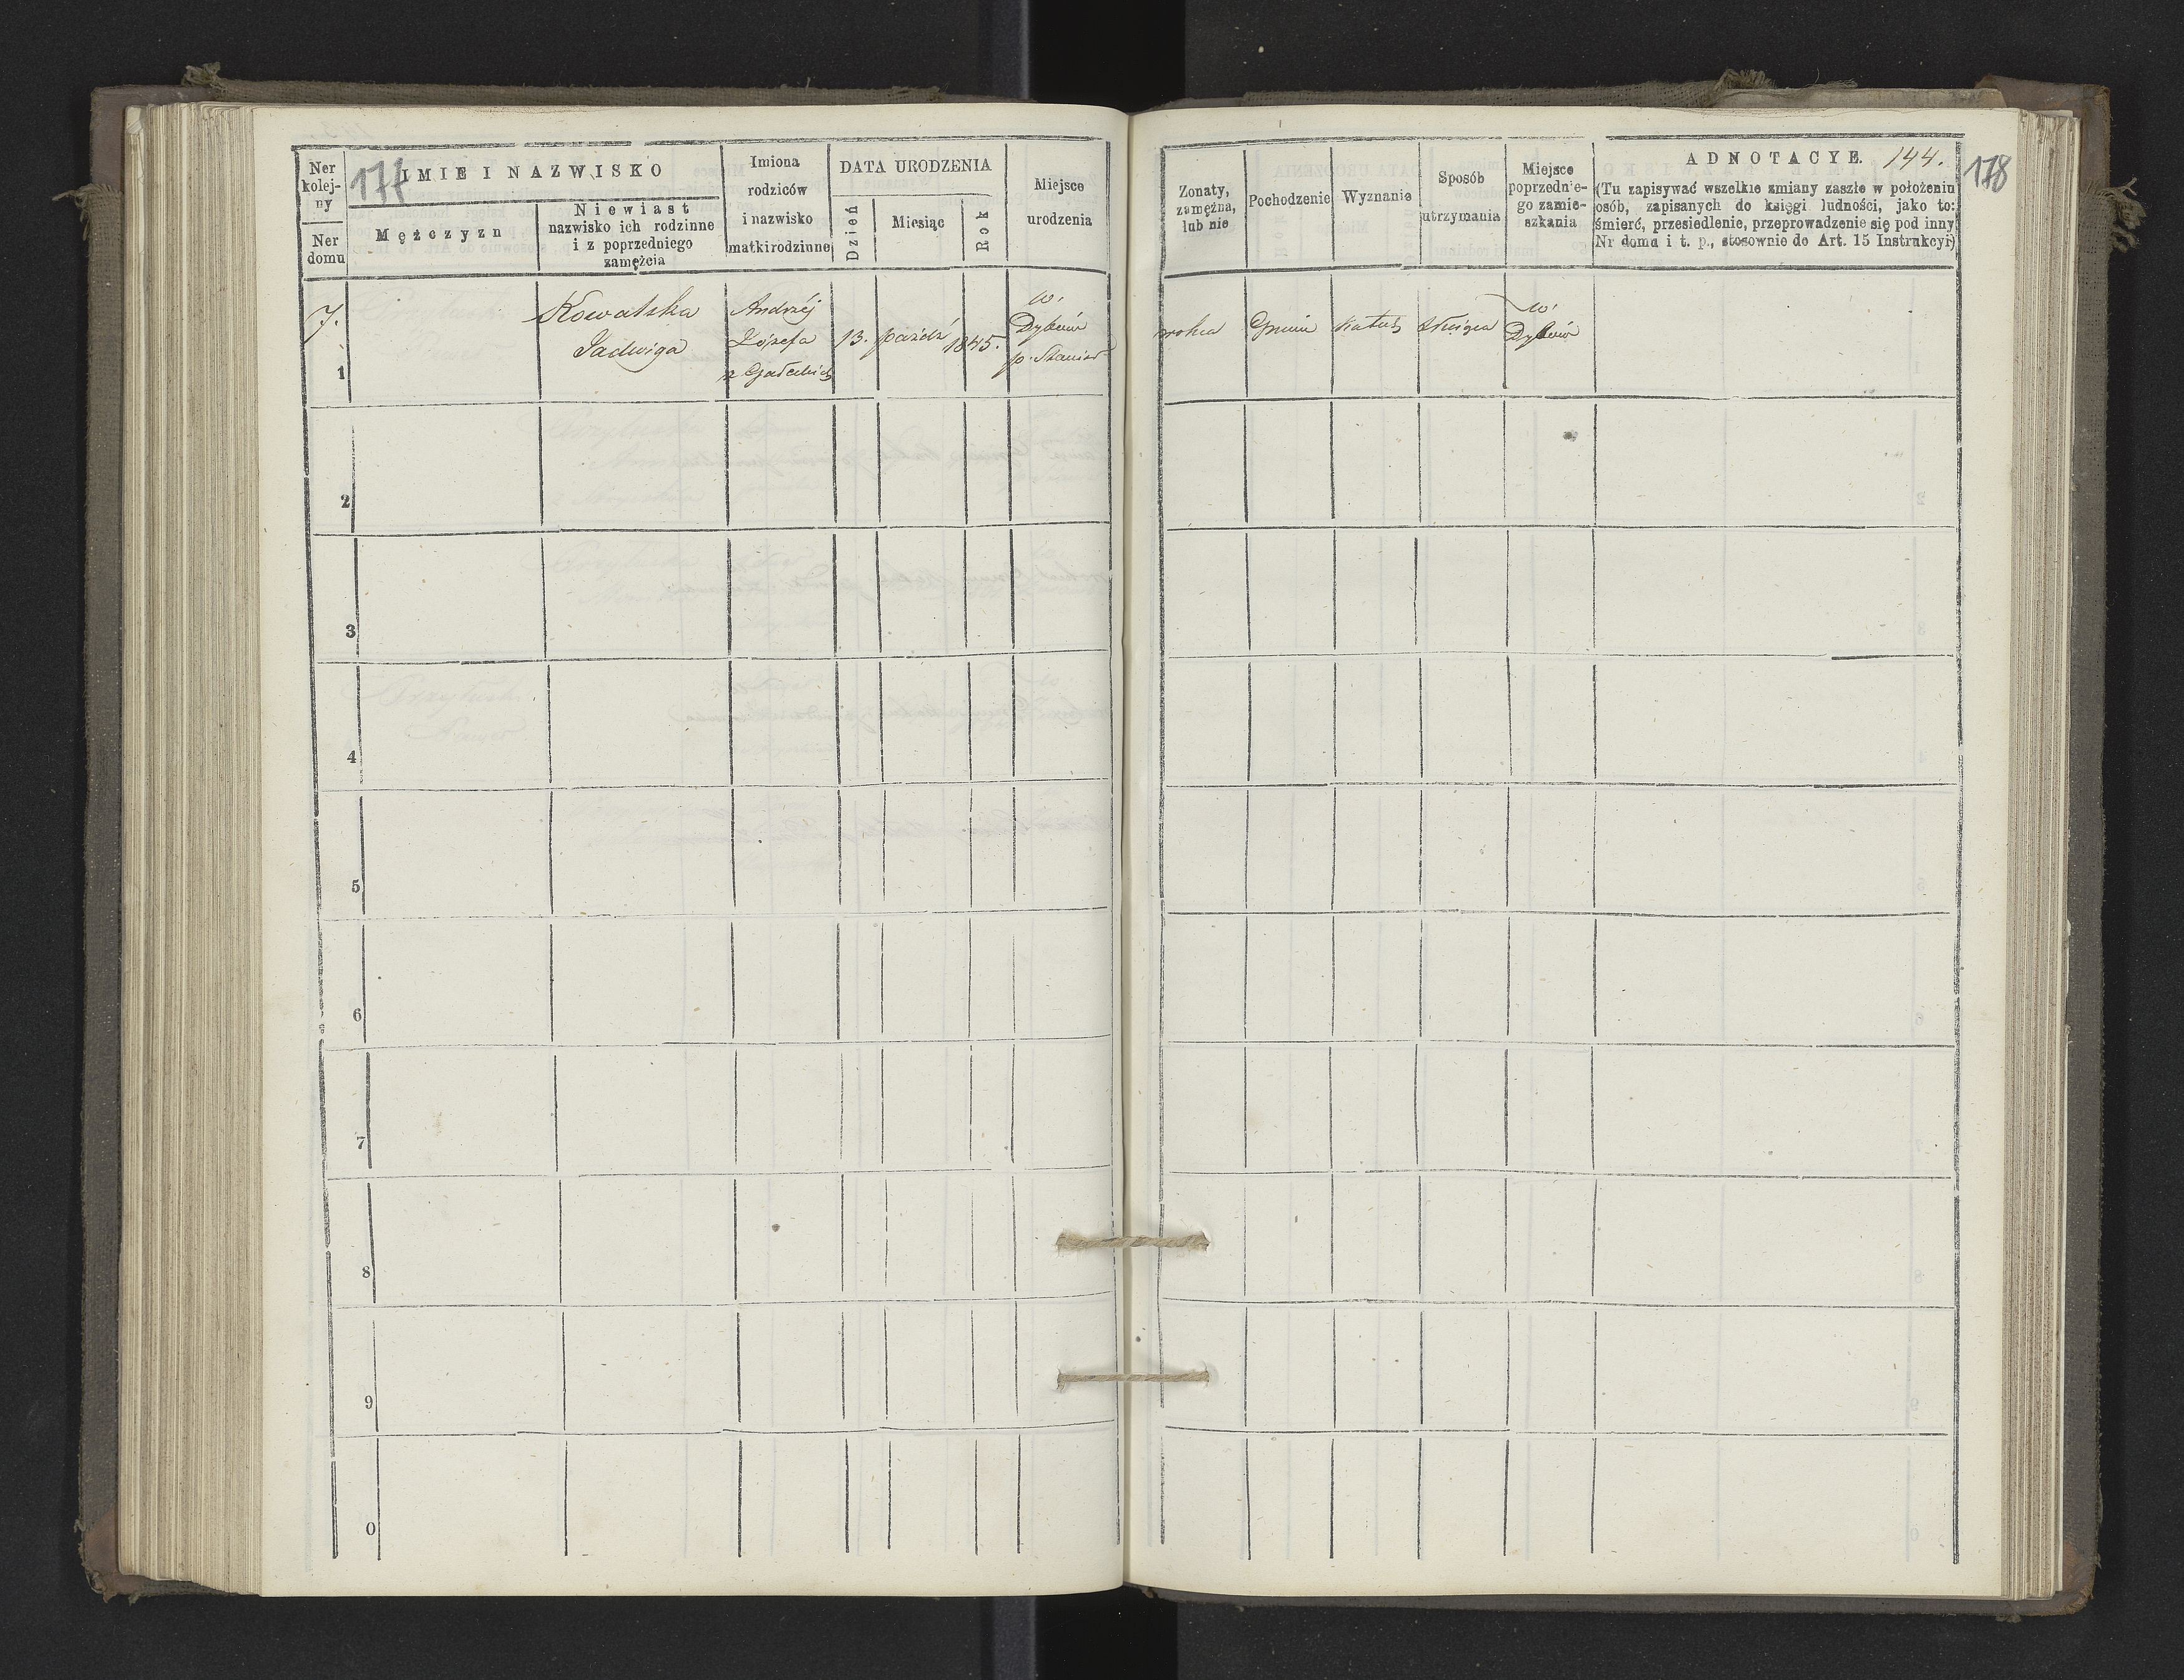 177
Ner
kolej-
ny
Ner
domu
IMIE I NAZWISKO
Mężczyzn
Niewiast
nazwisko ich rodzinne
i z poprzedniego
zamężcia
Imiona
rodziców
i nazwisko
matki rodzinne
DATA URODZENIA
Dzień
Miesiąc
Rok
Miejsce
urodzenia
7.
1
Kowalska
Jadwiga
Andrzéj
Józefa
13.
paźdź
1845.
w.
p.
2
3
4
5
6
7
8
9
0
Zonaty,
zamężna,
lub nie
Pochodzenie
Wyznanie
Sposób
utrzymania
Miejsce
poprzednie-
go zamie-
szkania
ADNOTACYE. 144.
178
(Tu zapisywać wszelkie zmiany zaszłe w położeniu
osób, zapisanych do księgi ludności, jako to:
śmierć, przesiedlenie, przeprowadzenie się pod inny
Nr domu i t. p., stosownie do Art. 15 Instrukcyi)
Gmin
w.